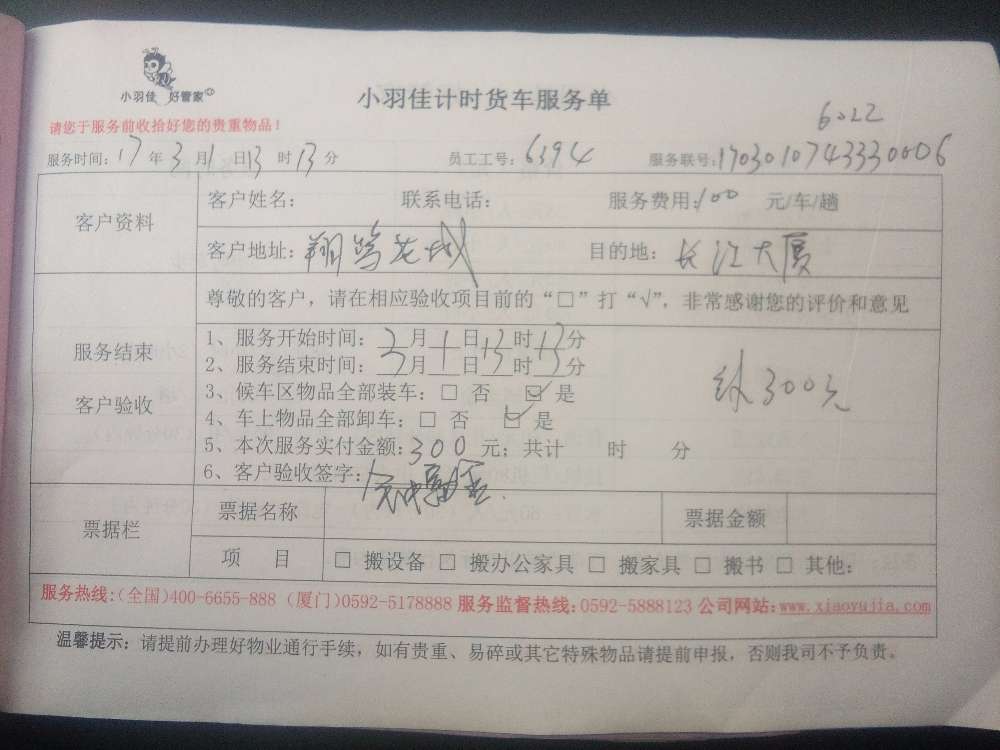 小羽佳 好管家
小羽佳计时货车服务单
6022
请您于服务前收拾好您的贵重物品!
服务时间: 17 年 3 月 1 日 13 时 13 分 员工工号: 6394 服务联号: 1703010743330006
客户资料
客户姓名: 联系电话: 服务费用: 100 元/车/趟
客户地址: 翔鹭花城 目的地: 长江大厦
服务结束
客户验收
尊敬的客户，请在相应验收项目前的“□”打“√”，非常感谢您的评价和意见
1、服务开始时间: 3 月 1 日 13 时 13 分
2、服务结束时间: 3 月 1 日 13 时 13 分
3、候车区物品全部装车: □ 否 ☑ 是
4、车上物品全部卸车: □ 否 ☑ 是
5、本次服务实付金额: 300 元; 共计 时 分
6、客户验收签字:
300元
票据栏
票据名称 票据金额
项 目 □ 搬设备 □ 搬办公家具 □ 搬家具 □ 搬书 □ 其他:
服务热线:(全国)400-6655-888 (厦门)0592-5178888 服务监督热线: 0592-5888123 公司网站: www.xiaoyujia.com
温馨提示: 请提前办理好物业通行手续，如有贵重、易碎或其它特殊物品请提前申报，否则我司不予负责。